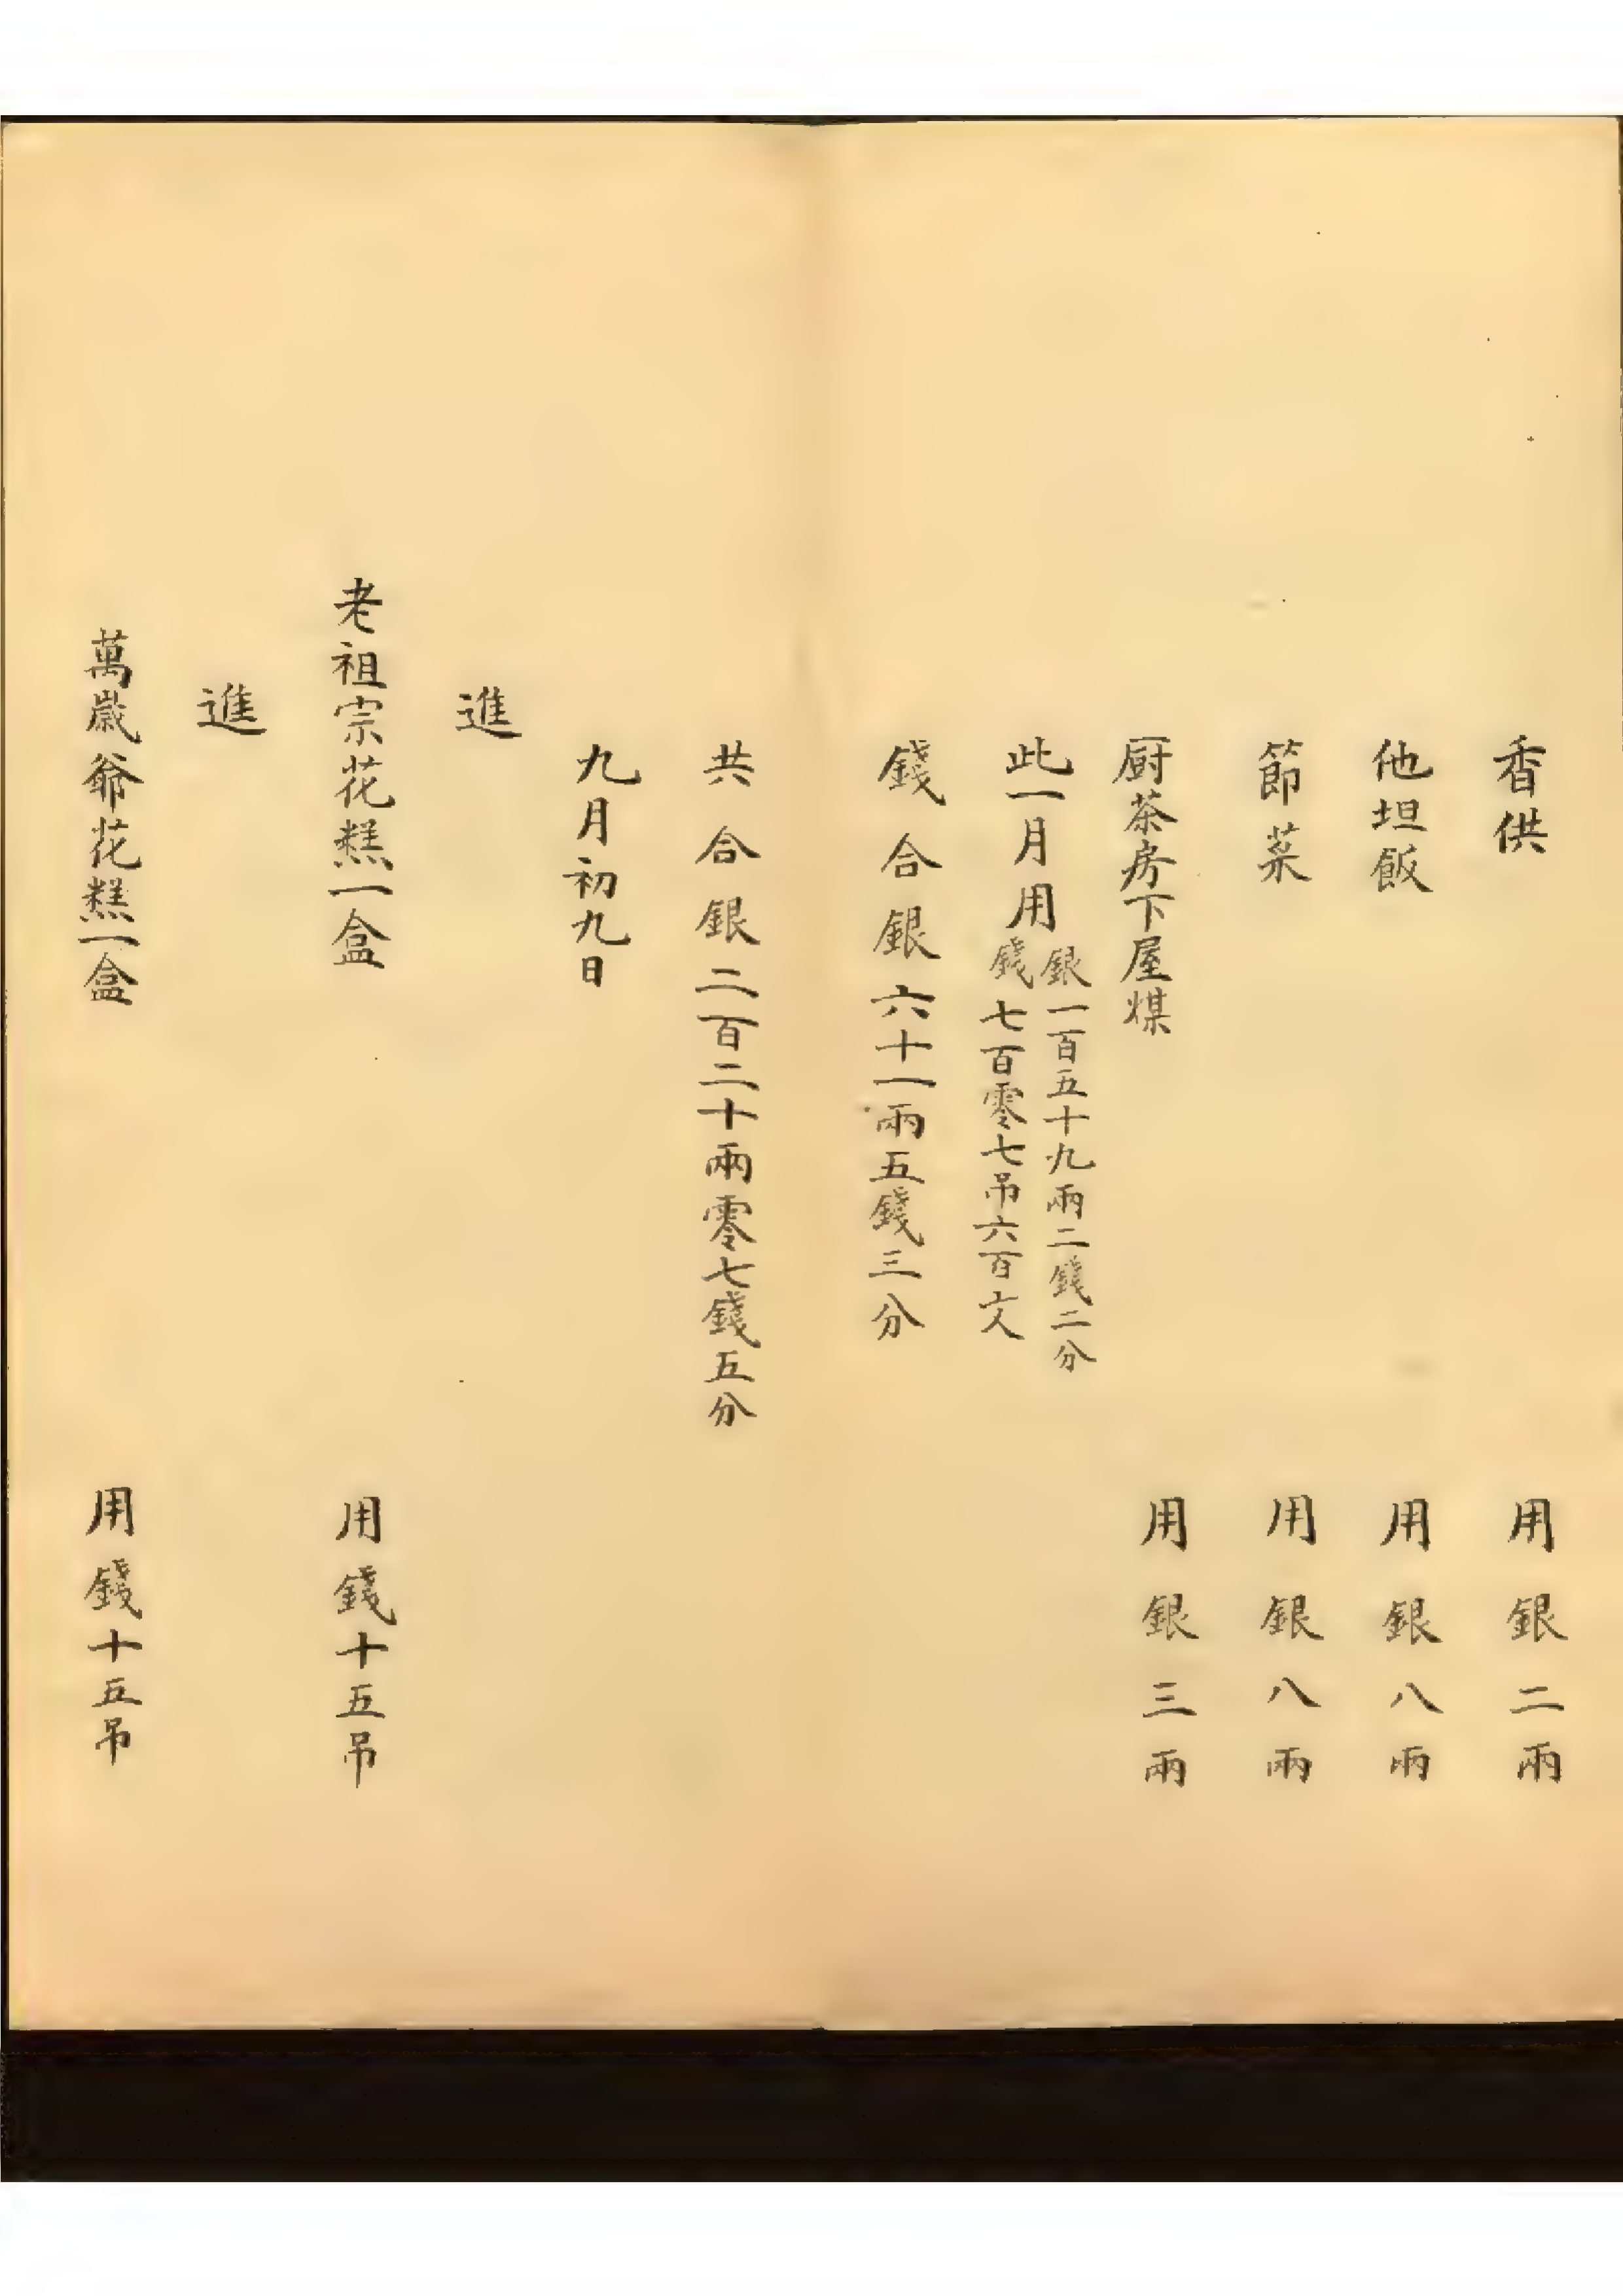 香供 用銀二兩
他坦飯 用銀八兩
節菜 用銀八兩
厨茶房下屋煤 用銀三兩
此一月用 銀一百五十九兩二錢二分
錢七百零七吊六百文
錢合銀六十一兩五錢三分
共合銀二百二十兩零七錢五分
九月初九日
進
老祖宗花糕一盒 用錢十五吊
進
萬歲爺花糕一盒 用錢十五吊